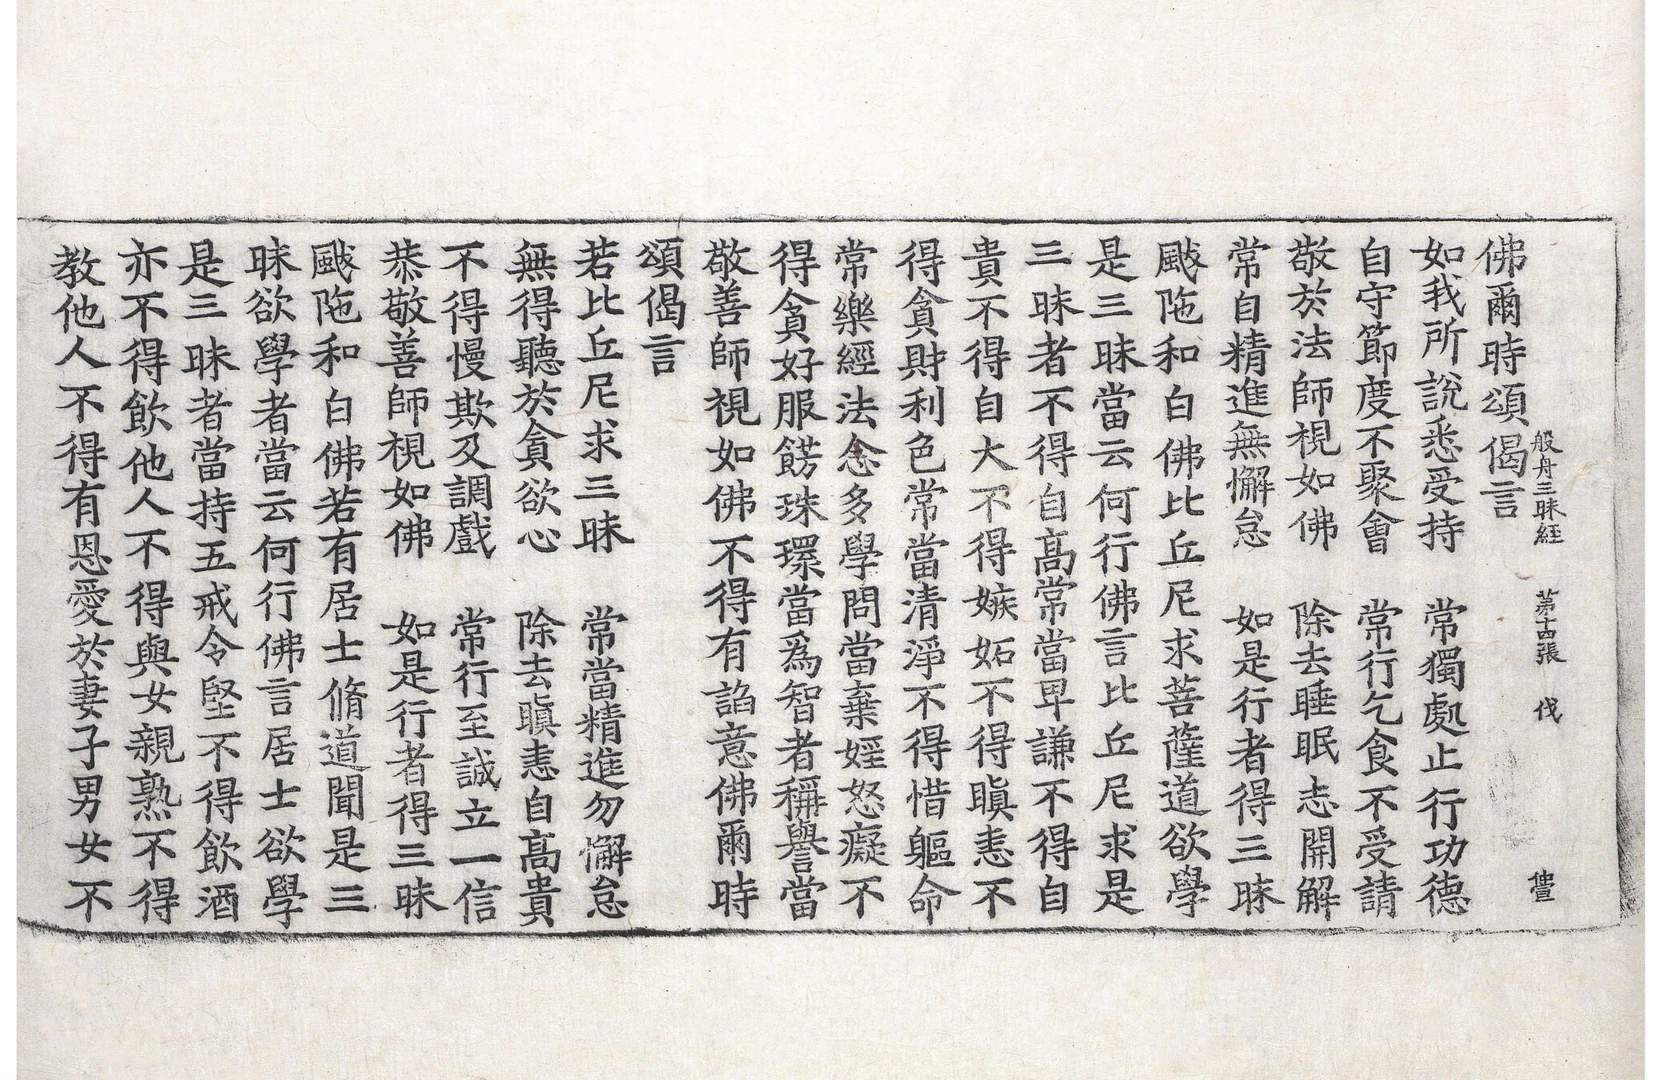 般舟三昧経　第十四張　伐
佛爾時頌偈言
如我所說悉受持　常獨處止行功德
自守節度不聚會　常行乞食不受請
敬於法師視如佛　除去睡眠志開解
常自精進無懈怠　如是行者得三昧
颰陁和白佛比丘尼求菩薩道欲學
是三昧當云何行佛言比丘尼求是
三昧者不得自高常當卑謙不得自
貴不得自大不得嫉妬不得瞋恚不
得貪財利色常當清淨不得惜軀命
常樂經法念多學問當棄婬怒癡不
得貪好服餝珠環當爲智者稱譽當
敬善師視如佛不得有諂意佛爾時
頌偈言
若比丘尼求三昧　常當精進勿懈怠
無得聽於貪欲心　除去瞋恚自高貴
不得慢欺及調戲　常行至誠立一信
恭敬善師視如佛　如是行者得三昧
颰陁和白佛若有居士脩道聞是三
昧欲學者當云何行佛言居士欲學
是三昧者當持五戒令堅不得飮酒
亦不得飮他人不得與女親熟不得
教他人不得有恩愛於妻子男女不